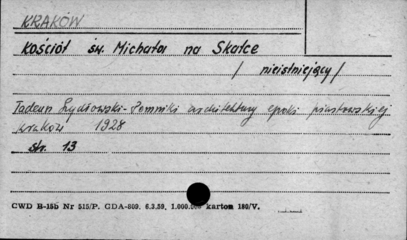 KRAKÓW
Kościół św. Michała na Skałce
/ nieistniejący /
Tadeusz Szydłowski - Pomniki architektury epoki piastowskiej
Kraków 1928
str. 13
CWD B-15b Nr 515/P. GDA-809. 6.3.59. 1.000.000 karton 180/V.